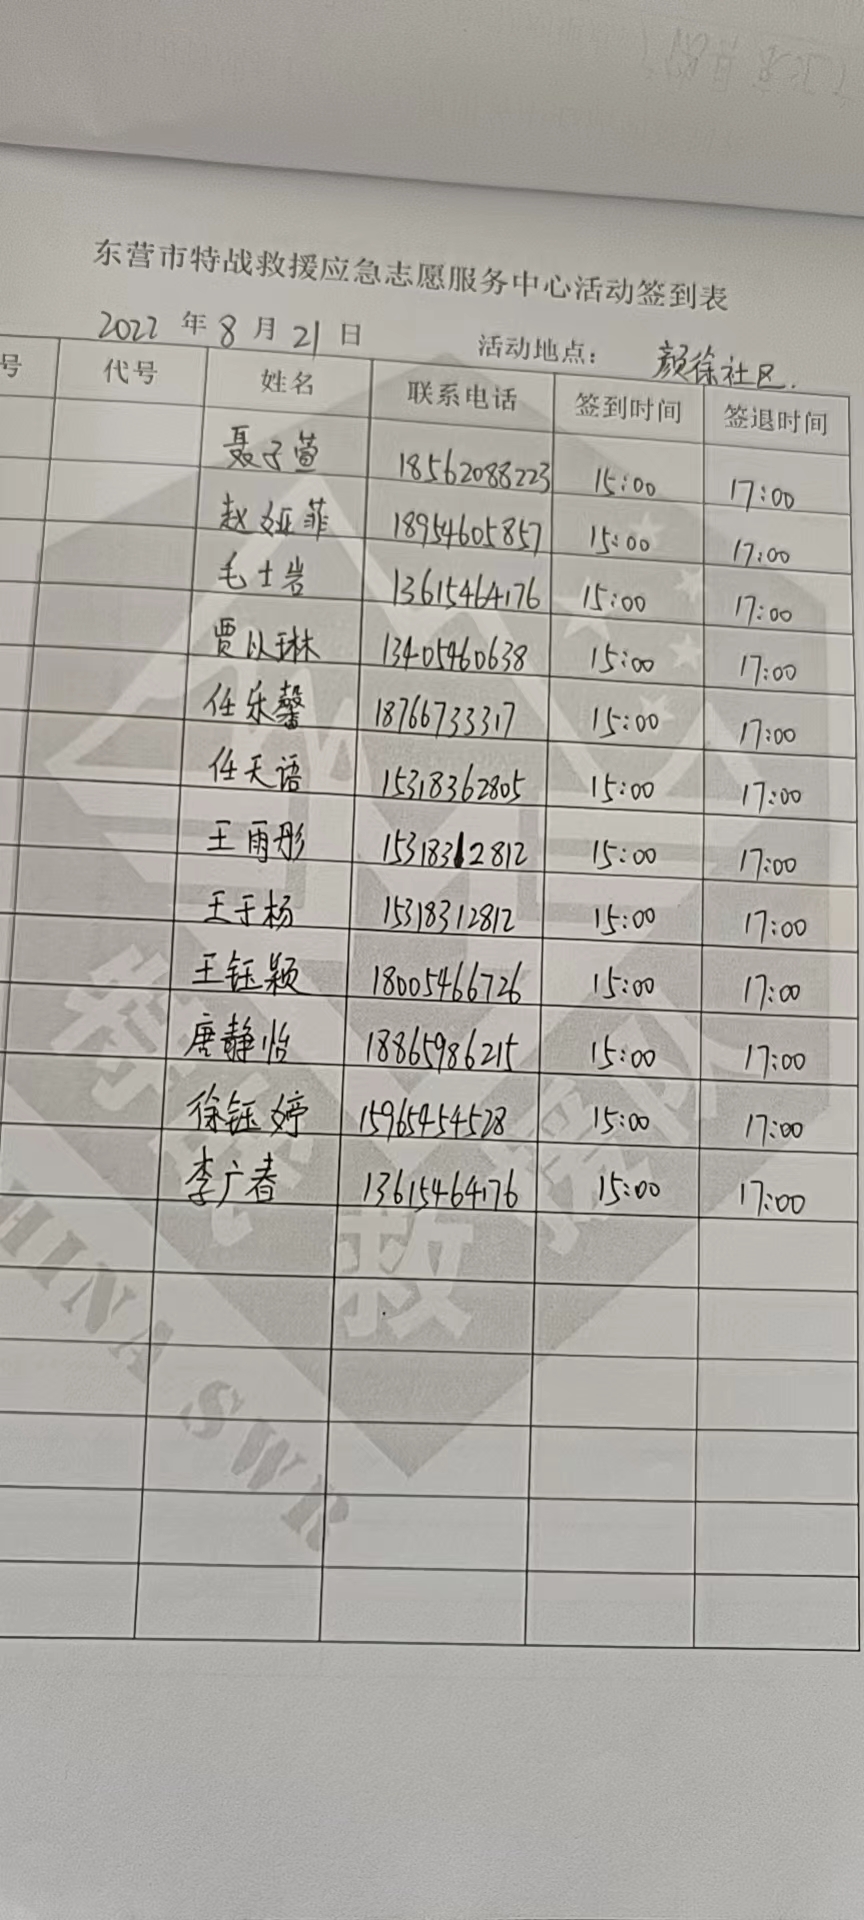 东营市特战救援应急志愿服务中心活动签到表
2022 年 8 月 21 日 活动地点: 颜徐社区.
号 代号 姓名 联系电话 签到时间 签退时间
聂子萱 18562088223 15:00 17:00
赵娅菲 18954605857 15:00 17:00
毛士岩 13615464176 15:00 17:00
贾以琳 13405460638 15:00 17:00
任乐馨 18766733317 15:00 17:00
任天语 15318362805 15:00 17:00
王雨彤 15318312812 15:00 17:00
王于杨 15318312812 15:00 17:00
王钰颖 18005466726 15:00 17:00
唐静怡 18865986215 15:00 17:00
徐钰婷 15965454528 15:00 17:00
李广春 13615464176 15:00 17:00
特战救援
HINA SWR